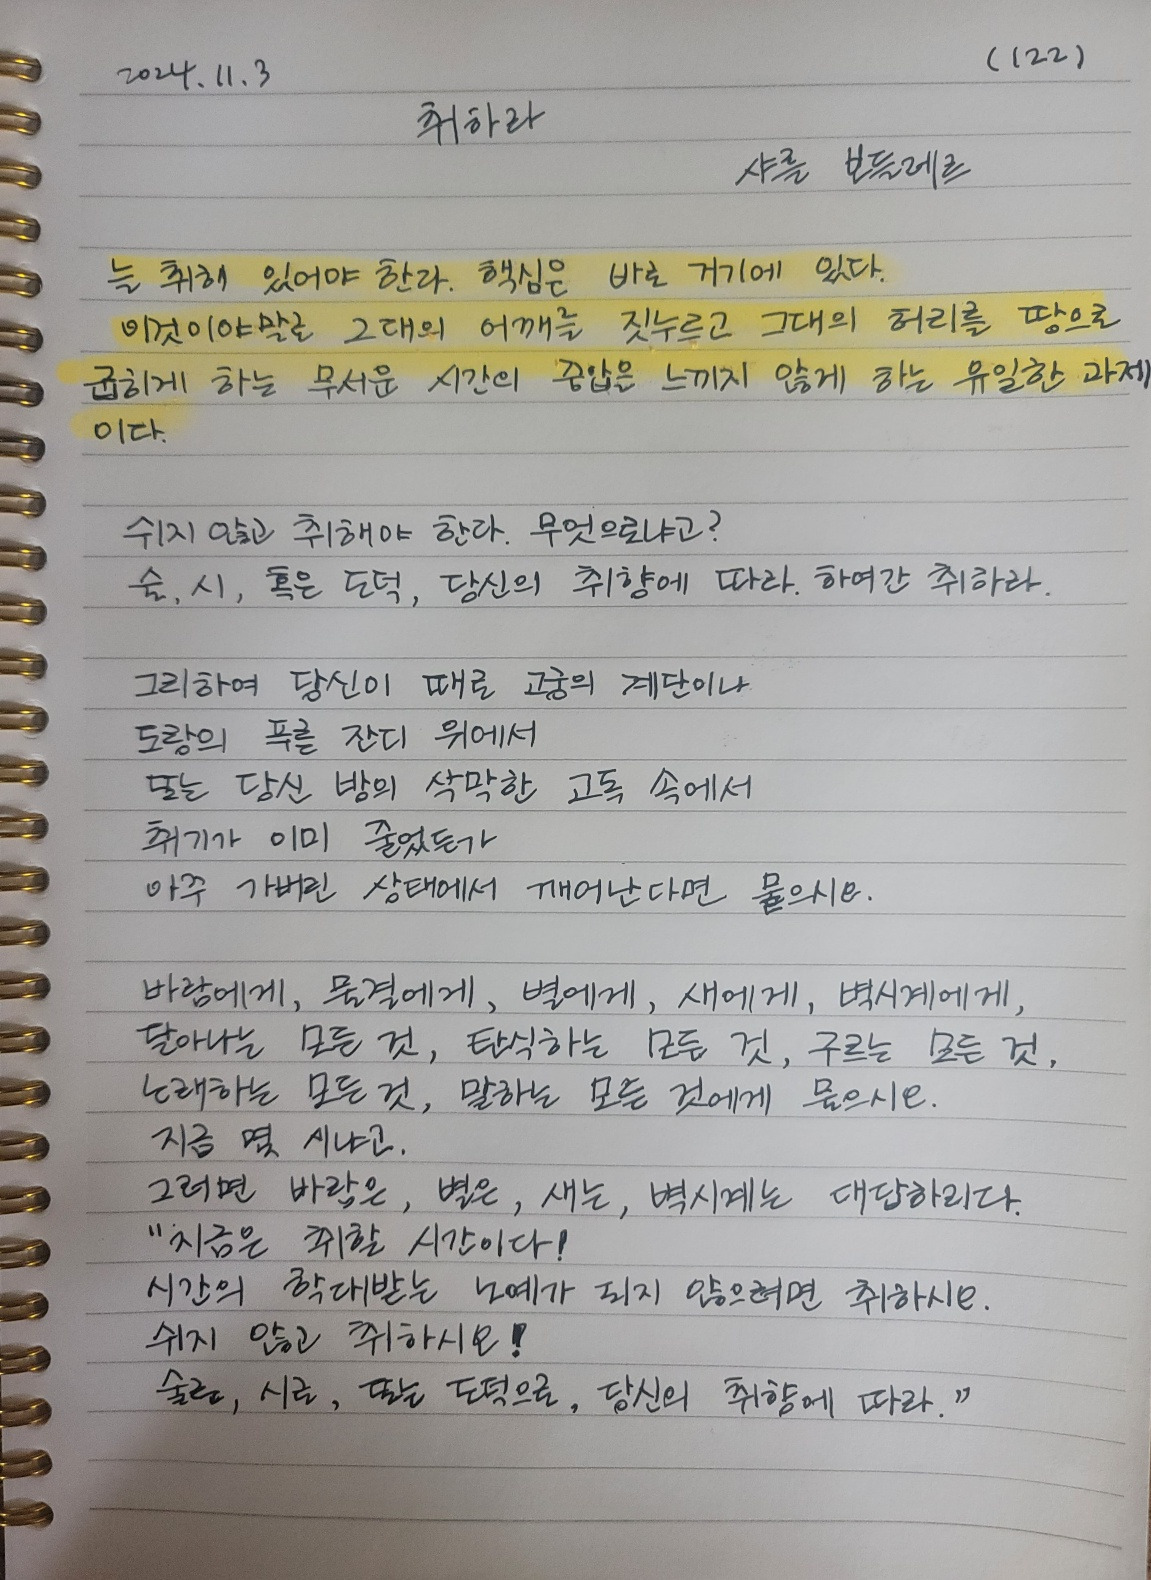 2024.11.3
(122)
취하라
샤를 보들레르
늘 취해 있어야 한다. 핵심은 바로 거기에 있다.
이것이야말로 그대의 어깨를 짓누르고 그대의 허리를 땅으로
굽히게 하는 무서운 시간의 중압을 느끼지 않게 하는 유일한 과제
이다.
쉬지 않고 취해야 한다. 무엇으로냐고?
술, 시, 혹은 도덕, 당신의 취향에 따라. 하여간 취하라.
그리하여 당신이 때로 고궁의 계단이나
도랑의 푸른 잔디 위에서
또는 당신 방의 삭막한 고독 속에서
취기가 이미 줄었든가
아주 가버린 상태에서 깨어난다면 물으시오.
바람에게, 물결에게, 별에게, 새에게, 벽시계에게,
달아나는 모든 것, 탄식하는 모든 것, 구르는 모든 것,
노래하는 모든 것, 말하는 모든 것에게 물으시오.
지금 몇 시냐고.
그러면 바람은, 별은, 새는, 벽시계는 대답하리다.
"지금은 취할 시간이다!
시간의 학대받는 노예가 되지 않으려면 취하시오.
쉬지 않고 취하시오!
술로, 시로, 또는 도덕으로, 당신의 취향에 따라."